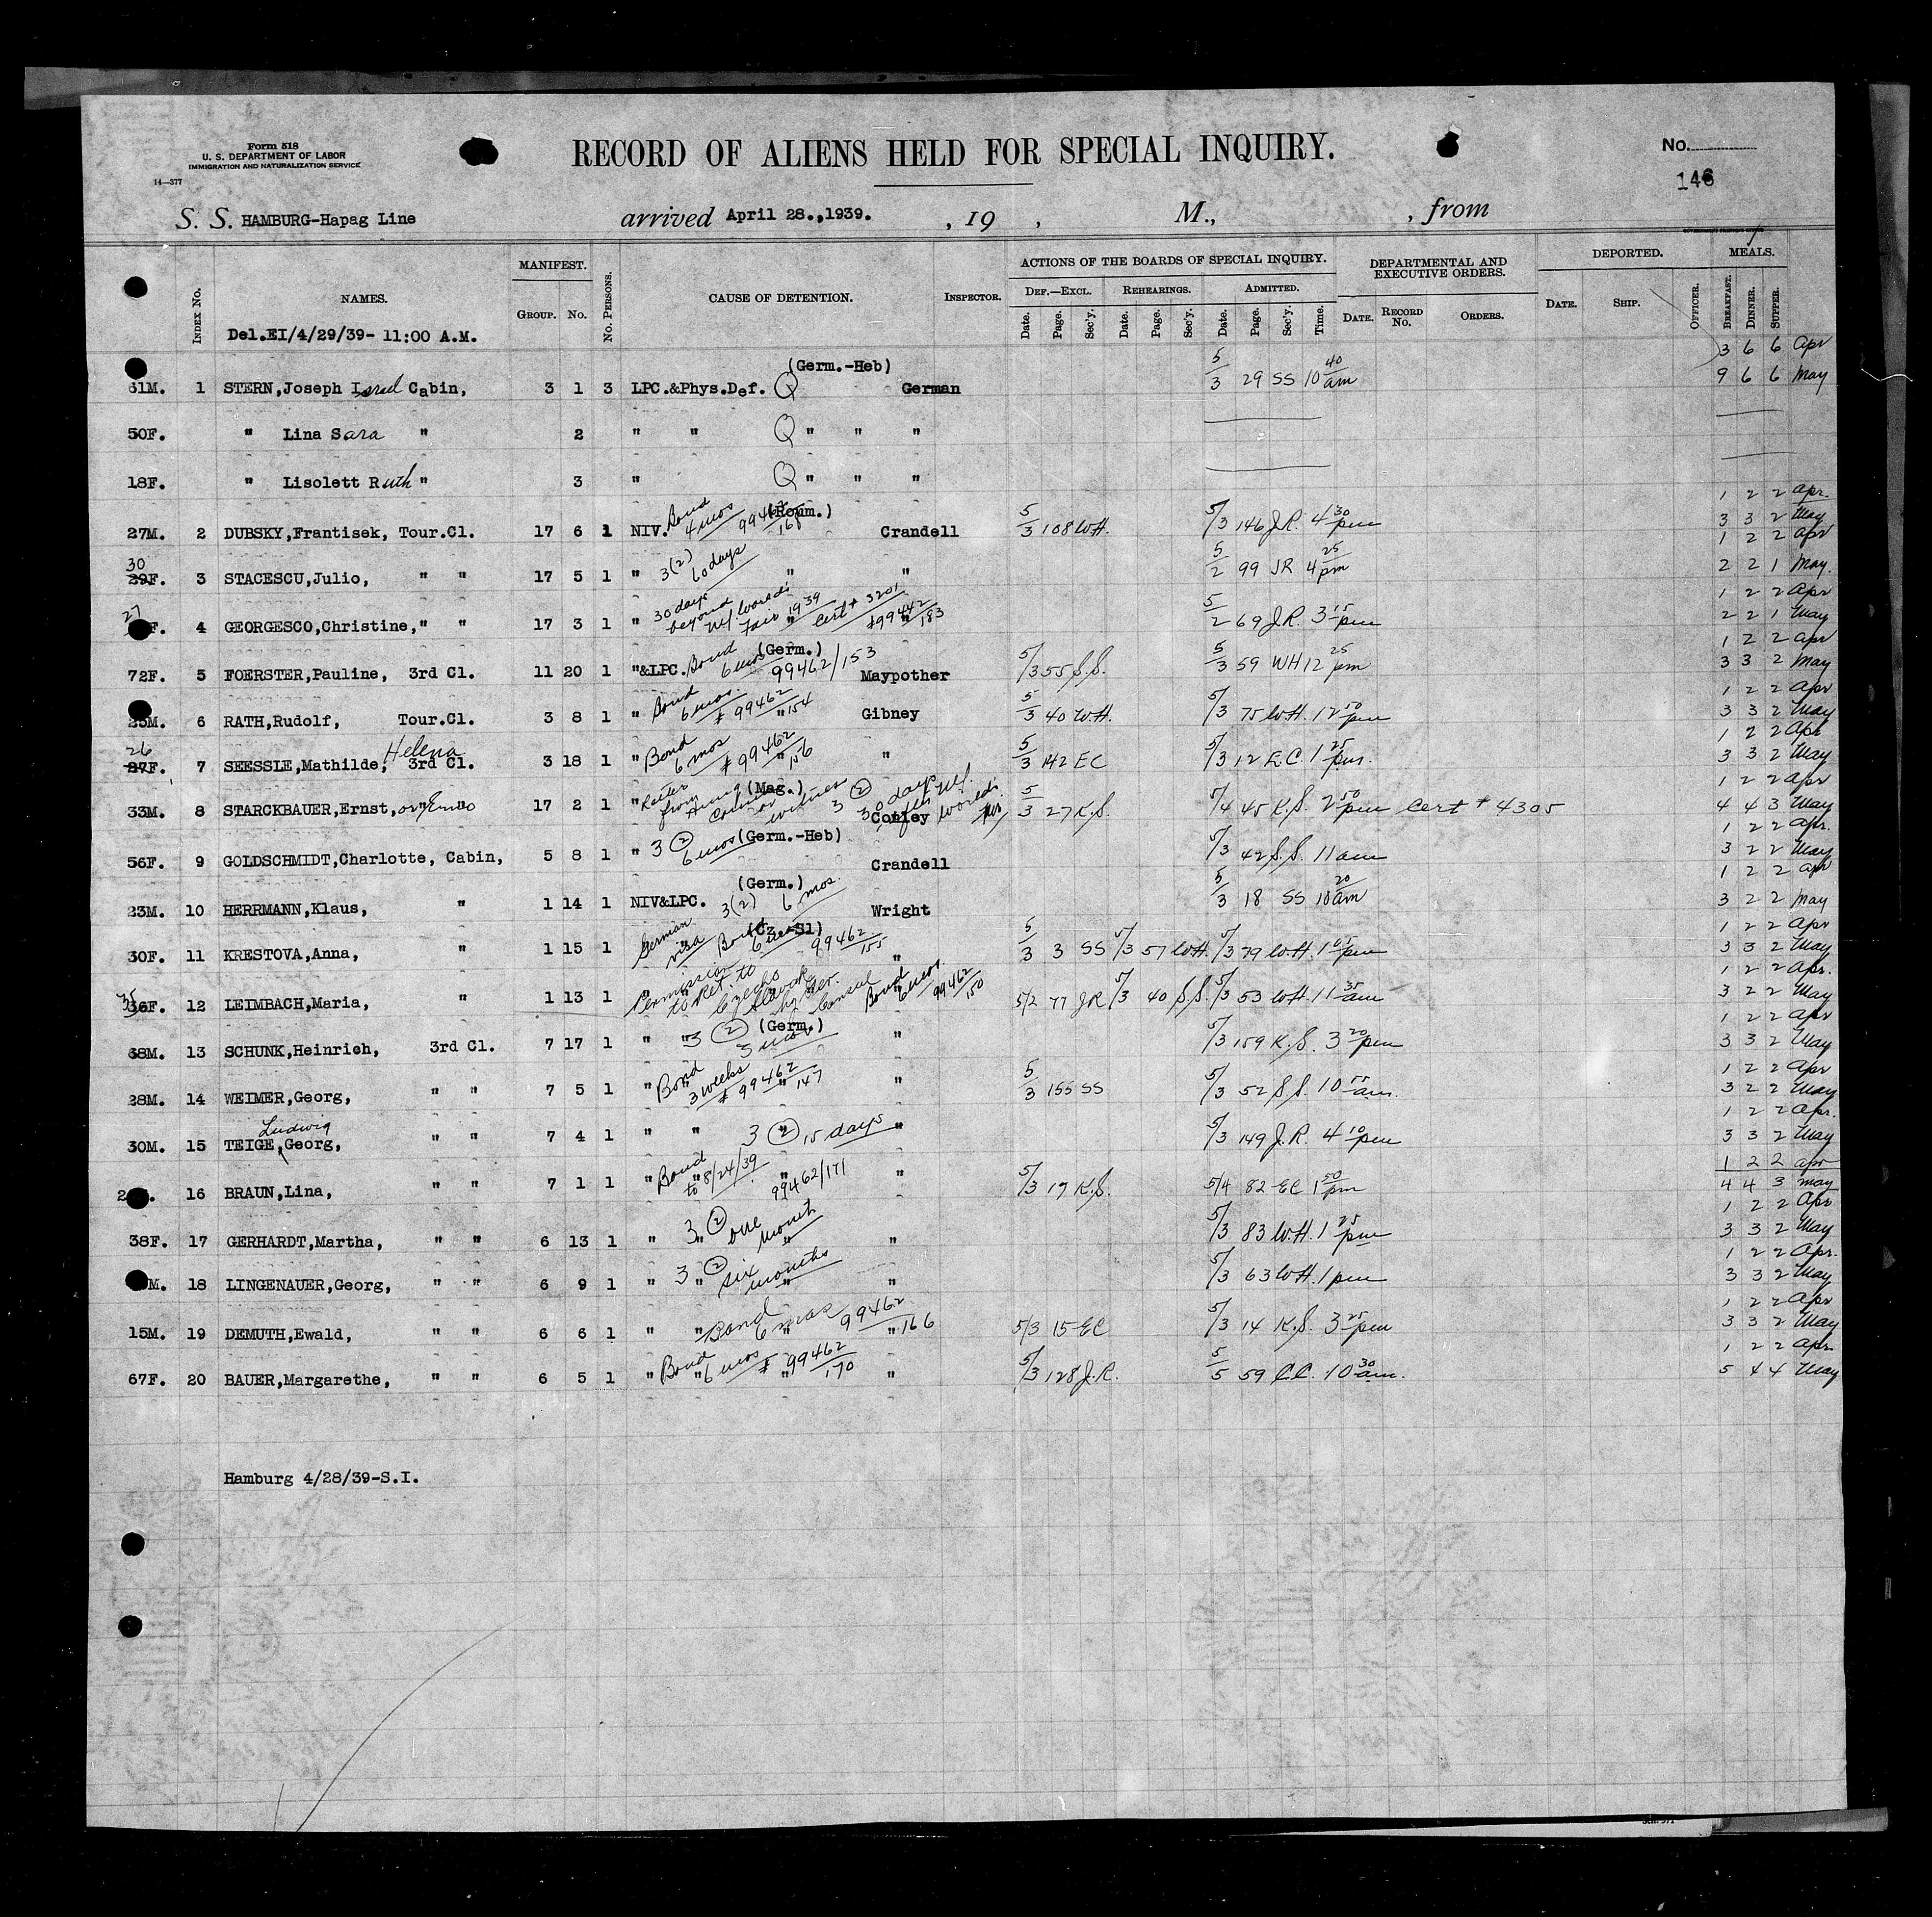 Form 518
U. S. DEPARTMENT OF LABOR
IMMIGRATION AND NATURALIZATION SERVICE
14—377
RECORD OF ALIENS HELD FOR SPECIAL INQUIRY.
No.
146
S. S. HAMBURG-Hapag Line arrived April 28.,1939. , 19 , M., , from
INDEX No. NAMES. MANIFEST. GROUP. No. No. PERSONS. CAUSE OF DETENTION. INSPECTOR. ACTIONS OF THE BOARDS OF SPECIAL INQUIRY. DEF.—EXCL. Date. Page. Sec'y. REHEARINGS. Date. Page. Sec'y. ADMITTED. Date. Page. Sec'y. Time. DEPARTMENTAL AND EXECUTIVE ORDERS. DATE. RECORD No. ORDERS. DEPORTED. DATE. SHIP. OFFICER. MEALS. BREAKFAST. DINNER. SUPPER.
Del.EI/4/29/39- 11:00 A.M.
3 6 6 Apr
(Germ.-Heb)
61M. 1 STERN,Joseph Israel Cabin, 3 1 3 LPC.&Phys.Def. Q German 5/3 29 SS 10 40 am 9 6 6 May
50F. " Lina Sara " 2 " " Q " " "
18F. " Lisolett Ruth " 3 " Q " " "
1 2 2 Apr.
27M. 2 DUBSKY,Frantisek, Tour.Cl. 17 6 1 NIV. Bond 4 mos 99462/168 (Roum.) Crandell 5/3 108 W.H. 5/3 146 J.R. 4 30 pm 3 3 2 May
1 2 2 Apr
30 29F. 3 STACESCU,Julio, " " 17 5 1 " 3(2) 60 days " " 5/2 99 JR 4 25 pm 2 2 1 May.
1 2 2 Apr
27 F. 4 GEORGESCO,Christine," " 17 3 1 " 30 days beyond N.Y. World's Fair 1939 Cert # 3201 #99442/183 5/2 69 J.R. 3 15 pm 2 2 1 May
1 2 2 Apr
72F. 5 FOERSTER,Pauline, 3rd Cl. 11 20 1 "&LPC. Bond 6 mos (Germ.) 99462/153 Maypother 5/3 55 S.S. 5/3 59 WH 12 25 pm 3 3 2 May
1 2 2 Apr
25M. 6 RATH,Rudolf, Tour.Cl. 3 8 1 " Bond 6 mos. # 99462/154 Gibney 5/3 40 W.H. 5/3 75 W.H. 12 50 pm 3 3 2 May
1 2 2 Apr
26 27F. 7 SEESSLE,Mathilde, Helena 3rd Cl. 3 18 1 " Bond 6 mos # 99462/156 " 5/3 142 EC 5/3 12 E.C. 1 25 pm. 3 3 2 May
1 2 2 Apr
33M. 8 STARCKBAUER,Ernst, or Erno 17 2 1 " Letter from Hung. Consul or witness (Mag.) 3 (2) 30 days after N.Y. World's Fair Conley 5/3 27 K.S. 5/4 45 K.S. 2 50 pm Cert # 4305 4 4 3 May
1 2 2 Apr.
56F. 9 GOLDSCHMIDT,Charlotte, Cabin, 5 8 1 " 3 (2) 6 mos (Germ.-Heb) Crandell 5/3 42 S.S. 11 am 3 2 2 May
1 2 2 Apr
23M. 10 HERRMANN,Klaus, " 1 14 1 NIV&LPC. (Germ.) 3(2) 6 mos. Wright 5/3 18 SS 10 20 am 3 2 2 May
1 2 2 Apr
30F. 11 KRESTOVA,Anna, " 1 15 1 German visa Bond 6 mos (Cz.-Sl) 99462/155 " 5/3 3 SS 5/3 57 W.H. 5/3 79 W.H. 1 05 pm 3 3 2 May
1 2 2 Apr.
35 36F. 12 LEIMBACH,Maria, " 1 13 1 " Permission to ret. to Czecho Slovak by Ger. Consul Bond 6 mos. 99462/150 5/2 77 JR 5/3 40 S.S. 5/3 53 W.H. 11 35 am 3 2 2 May
1 2 2 Apr
68M. 13 SCHUNK,Heinrich, 3rd Cl. 7 17 1 " " 3 (2) 3 mos (Germ.) " 5/3 159 K.S. 3 20 pm 3 3 2 May
1 2 2 Apr
28M. 14 WEIMER,Georg, " " 7 5 1 " Bond 3 weeks # 99462/147 " 5/3 155 SS 5/3 52 S.S. 10 55 am. 3 2 2 May
1 2 2 Apr.
30M. 15 TEIGE, Ludwig Georg, " " 7 4 1 " " 3 (2) 15 days " 5/3 149 J.R. 4 10 pm 3 3 2 May
1 2 2 Apr
16 BRAUN,Lina, " " 7 1 1 " Bond to 8/24/39 99462/171 " 5/3 17 K.S. 5/4 82 EC 1 50 pm 4 4 3 May
1 2 2 Apr
38F. 17 GERHARDT,Martha, " " 6 13 1 " " 3 (2) one month " " 5/3 83 W.H. 1 25 pm 3 3 2 May
1 2 2 Apr.
M. 18 LINGENAUER,Georg, " " 6 9 1 " " 3 (2) six months " " 5/3 63 W.H. 1 pm 3 3 2 May
1 2 2 Apr
15M. 19 DEMUTH,Ewald, " " 6 6 1 " " Bond 6 mos 99462/166 " 5/3 15 EC 5/3 14 K.S. 3 25 pm 3 3 2 May
1 2 2 Apr
67F. 20 BAUER,Margarethe, " " 6 5 1 " Bond 6 mos # 99462/170 " 5/3 128 J.R. 5/5 59 C.C. 10 30 am. 5 4 4 May
Hamburg 4/28/39-S.I.